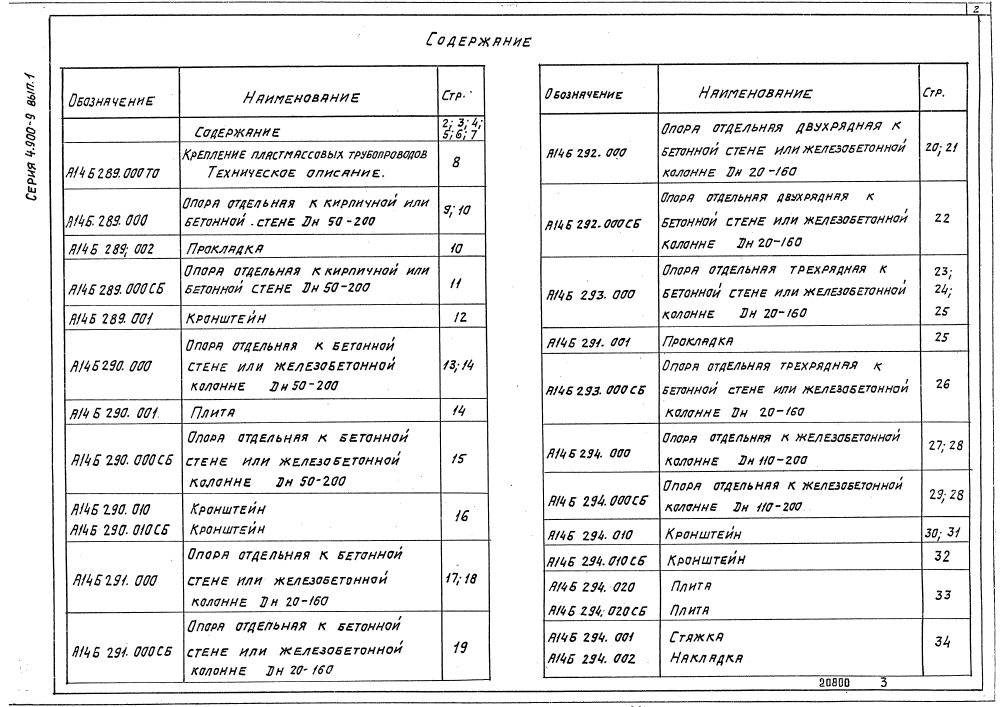 2
СОДЕРЖАНИЕ
СЕРИЯ 4.900-9 ВЫП.1
ОБОЗНАЧЕНИЕ НАИМЕНОВАНИЕ СТР.
СОДЕРЖАНИЕ 2; 3; 4;
5; 6; 7
А14Б289.000ТО КРЕПЛЕНИЕ ПЛАСТМАССОВЫХ ТРУБОПРОВОДОВ 8
ТЕХНИЧЕСКОЕ ОПИСАНИЕ.
А14Б.289.000 ОПОРА ОТДЕЛЬНАЯ К КИРПИЧНОЙ ИЛИ 9; 10
БЕТОННОЙ СТЕНЕ Dн 50-200
А14Б 289; 002 ПРОКЛАДКА 10
А14Б 289.000СБ ОПОРА ОТДЕЛЬНАЯ К КИРПИЧНОЙ ИЛИ 11
БЕТОННОЙ СТЕНЕ Dн 50-200
А14Б 289.001 КРОНШТЕЙН 12
А14Б290.000 ОПОРА ОТДЕЛЬНАЯ К БЕТОННОЙ 13; 14
СТЕНЕ ИЛИ ЖЕЛЕЗОБЕТОННОЙ
КОЛОННЕ Dн 50-200
А14Б 290.001. ПЛИТА 14
А14Б 290.000СБ ОПОРА ОТДЕЛЬНАЯ К БЕТОННОЙ 15
СТЕНЕ ИЛИ ЖЕЛЕЗОБЕТОННОЙ
КОЛОННЕ Dн 50-200
А14Б 290.010 КРОНШТЕЙН 16
А14Б 290.010СБ КРОНШТЕЙН
А14Б291.000 ОПОРА ОТДЕЛЬНАЯ К БЕТОННОЙ 17; 18
СТЕНЕ ИЛИ ЖЕЛЕЗОБЕТОННОЙ
КОЛОННЕ Dн 20-160
А14Б 291.000СБ ОПОРА ОТДЕЛЬНАЯ К БЕТОННОЙ 19
СТЕНЕ ИЛИ ЖЕЛЕЗОБЕТОННОЙ
КОЛОННЕ Dн 20-160
ОБОЗНАЧЕНИЕ НАИМЕНОВАНИЕ СТР.
А14Б 292.000 ОПОРА ОТДЕЛЬНАЯ ДВУХРЯДНАЯ К 20; 21
БЕТОННОЙ СТЕНЕ ИЛИ ЖЕЛЕЗОБЕТОННОЙ
КОЛОННЕ Dн 20-160
А14Б 292.000СБ ОПОРА ОТДЕЛЬНАЯ ДВУХРЯДНАЯ К 22
БЕТОННОЙ СТЕНЕ ИЛИ ЖЕЛЕЗОБЕТОННОЙ
КОЛОННЕ Dн 20-160
А14Б 293.000 ОПОРА ОТДЕЛЬНАЯ ТРЕХРЯДНАЯ К 23;
БЕТОННОЙ СТЕНЕ ИЛИ ЖЕЛЕЗОБЕТОННОЙ 24;
КОЛОННЕ Dн 20-160 25
А14Б 291.001 ПРОКЛАДКА 25
А14Б 293.000СБ ОПОРА ОТДЕЛЬНАЯ ТРЕХРЯДНАЯ К 26
БЕТОННОЙ СТЕНЕ ИЛИ ЖЕЛЕЗОБЕТОННОЙ
КОЛОННЕ Dн 20-160
А14Б 294.000 ОПОРА ОТДЕЛЬНАЯ К ЖЕЛЕЗОБЕТОННОЙ 27; 28
КОЛОННЕ Dн 110-200
А14Б 294.000СБ ОПОРА ОТДЕЛЬНАЯ К ЖЕЛЕЗОБЕТОННОЙ 29; 28
КОЛОННЕ Dн 110-200
А14Б 294.010 КРОНШТЕЙН 30; 31
А14Б 294.010СБ КРОНШТЕЙН 32
А14Б 294.020 ПЛИТА 33
А14Б 294.020СБ ПЛИТА
А14Б 294.001 СТЯЖКА 34
А14Б 294.002 НАКЛАДКА
20800 3